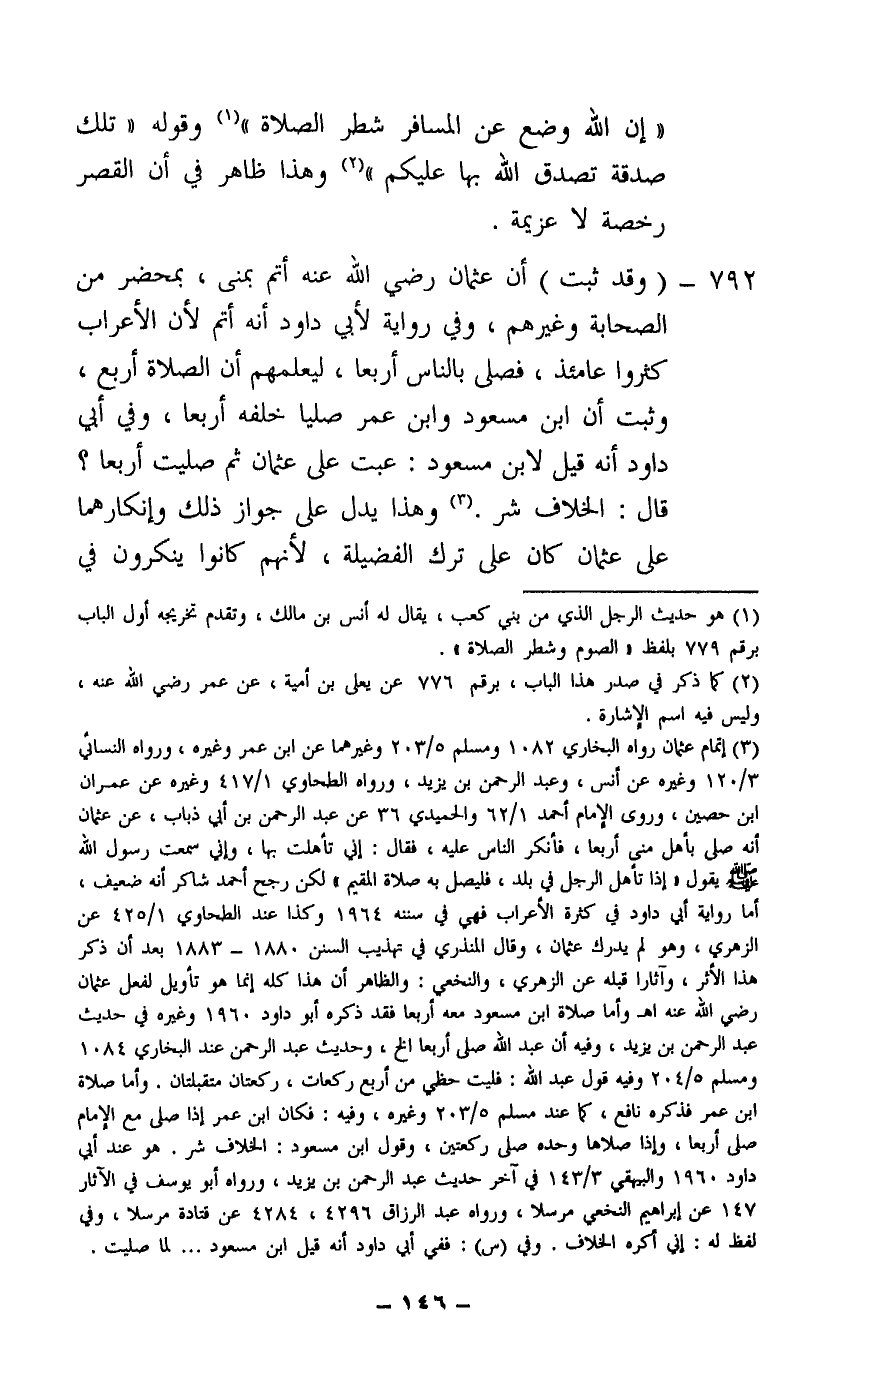 « إن الله وضع عن المسافر شطر الصلاة »(١) وقوله « تلك
صدقة تصدق الله بها عليكم »(٢) وهذا ظاهر في أن القصر
رخصة لا عزيمة .
٧٩٢ – ( وقد ثبت ) أن عثمان رضي الله عنه أتم بمنى ، بمحضر من
الصحابة وغيرهم ، وفي رواية لأبي داود أنه أتم لأن الأعراب
كثروا عامئذ ، فصلى بالناس أربعا ، ليعلمهم أن الصلاة أربع ،
وثبت أن ابن مسعود وابن عمر صليا خلفه أربعا ، وفي أبي
داود أنه قيل لابن مسعود : عبت على عثمان ثم صليت أربعا ؟
قال : الخلاف شر .(٣) وهذا يدل على جواز ذلك وإنكارهما
على عثمان كان على ترك الفضيلة ، لأنهم كانوا ينكرون في
(١) هو حديث الرجل الذي من بني كعب ، يقال له أنس بن مالك ، وتقدم تخريجه أول الباب
برقم ٧٧٩ بلفظ « الصوم وشطر الصلاة » .
(٢) كما ذكر في صدر هذا الباب ، برقم ٧٧٦ عن يعلى بن أمية ، عن عمر رضي الله عنه ،
وليس فيه اسم الإشارة .
(٣) إتمام عثمان رواه البخاري ١٠٨٢ ومسلم ٢٠٣/٥ وغيرهما عن ابن عمر وغيره ، ورواه النسائي
١٢٠/٣ وغيره عن أنس ، وعبد الرحمن بن يزيد ، ورواه الطحاوي ٤١٧/١ وغيره عن عمران
ابن حصين ، وروى الإمام أحمد ٦٢/١ والحميدي ٣٦ عن عبد الرحمن بن أبي ذباب ، عن عثمان
أنه صلى بأهل منى أربعا ، فأنكر الناس عليه ، فقال : إني تأهلت بها ، وإني سمعت رسول الله
ﷺ يقول « إذا تأهل الرجل في بلد ، فليصل به صلاة المقيم » لكن رجح أحمد شاكر أنه ضعيف ،
أما رواية أبي داود في كثرة الأعراب فهي في سننه ١٩٦٤ وكذا عند الطحاوي ٤٢٥/١ عن
الزهري ، وهو لم يدرك عثمان ، وقال المنذري في تهذيب السنن ١٨٨٠ – ١٨٨٣ بعد أن ذكر
هذا الأثر ، وآثارا قبله عن الزهري ، والنخعي : والظاهر أن هذا كله إنما هو تأويل لفعل عثمان
رضي الله عنه اهـ وأما صلاة ابن مسعود معه أربعا فقد ذكره أبو داود ١٩٦٠ وغيره في حديث
عبد الرحمن بن يزيد ، وفيه أن عبد الله صلى أربعا الخ ، وحديث عبد الرحمن عند البخاري ١٠٨٤
ومسلم ٢٠٤/٥ وفيه قول عبد الله : فليت حظي من أربع ركعات ، ركعتان متقبلتان . وأما صلاة
ابن عمر فذكره نافع ، كما عند مسلم ٢٠٣/٥ وغيره ، وفيه : فكان ابن عمر إذا صلى مع الإمام
صلى أربعا ، وإذا صلاها وحده صلى ركعتين ، وقول ابن مسعود : الخلاف شر . هو عند أبي
داود ١٩٦٠ والبيهقي ١٤٣/٣ في آخر حديث عبد الرحمن بن يزيد ، ورواه أبو يوسف في الآثار
١٤٧ عن إبراهيم النخعي مرسلا ، ورواه عبد الرزاق ٤٢٩٦ ، ٤٢٨٤ عن قتادة مرسلا ، وفي
لفظ له : إني أكره الخلاف . وفي (س) : ففي أبي داود أنه قيل ابن مسعود ... لما صليت .
– ١٤٦ –